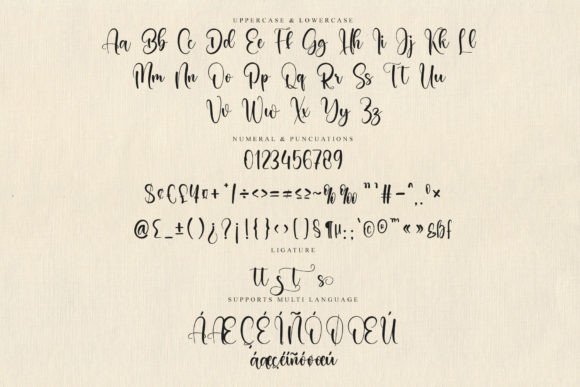 UPPERCASE & LOWERCASE
Aa Bb Cc Dd Ee Ff Gg Hh Ii Jj Kk Ll
Mm Nn Oo Pp Qq Rr Ss Tt Uu
Vv Ww Xx Yy Zz
NUMERAL & PUNCUATIONS
0123456789
$¢€£¥¤+*/÷<>=≠≤≥~%‰"'#-^,.°×
@{_±()¿?¡!{}‹›()§¶µ:;'©®™«»&bf
LIGATURE
tt s t s
SUPPORTS MULTI LANGUAGE
ÁÆÇÉÍÑÓØŒÚ
áæçéíñóøœú